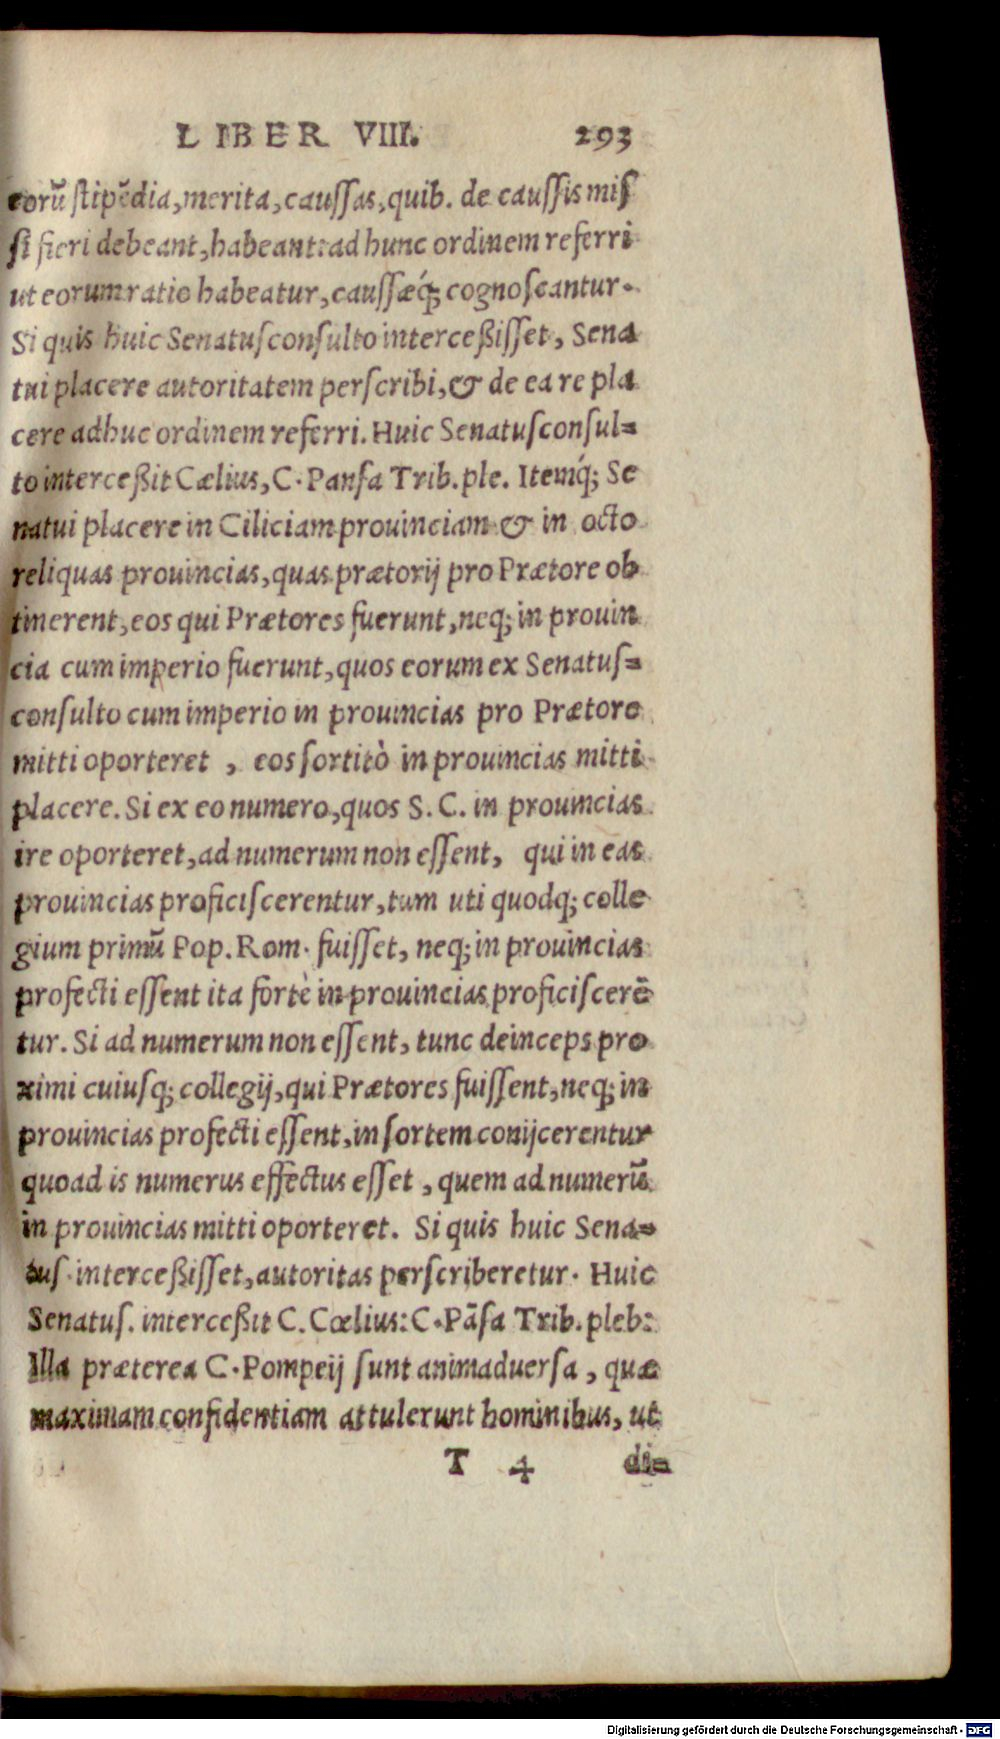 LIBER VIII. 293
eorū stipēdia, merita, caussas, quib. de caussis mis
si fieri debeant, habeant: ad hunc ordinem referri
ut eorum ratio habeatur, caussæq́; cognoscantur.
Si quis huic Senatusconsulto interceßisset, Sena
tui placere autoritatem perscribi, & de ea re pla
cere adhuc ordinem referri. Huic Senatusconsul=
to interceßit Cælius, C. Pansa Trib. ple. Itemq́; Se
natui placere in Ciliciam prouinciam & in octo
reliquas prouincias, quas prætorij pro Prætore ob
tinerent, eos qui Prætores fuerunt, neq; in prouin
cia cum imperio fuerunt, quos eorum ex Senatus=
consulto cum imperio in prouincias pro Prætore
mitti oporteret, eos sortitò in prouincias mitti
placere. Si ex eo numero, quos S. C. in prouincias
ire oporteret, ad numerum non essent, qui in eas
prouincias proficiscerentur, tum uti quodq; colle
gium primū Pop. Rom. fuisset, neq; in prouincias
profecti essent ita fortè in prouincias proficiscerē
tur. Si ad numerum non essent, tunc deinceps pro
ximi cuiusq; collegij, qui Prætores fuissent, neq; in
prouincias profecti essent, in sortem conijcerentur
quoad is numerus effectus esset, quem ad numerū
in prouincias mitti oporteret. Si quis huic Sena=
tus. interceßisset, autoritas perscriberetur. Huic
Senatus. interceßit C. Cœlius: C. Pāsa Trib. pleb:
Illa præterea C. Pompeij sunt animaduersa, quæ
maximam confidentiam attulerunt hominibus, ut
T 4 di=
Digitalisierung gefördert durch die Deutsche Forschungsgemeinschaft - DFG